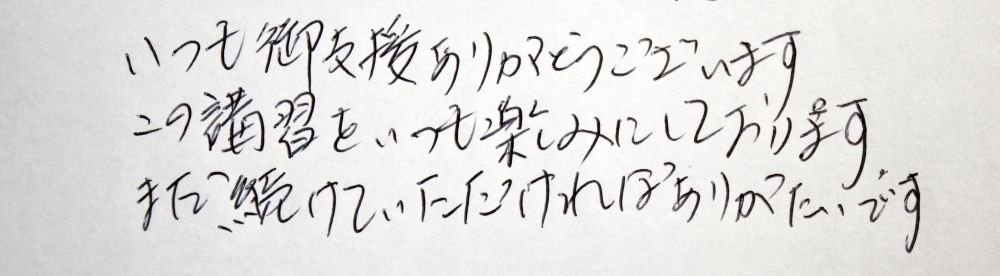 いつも御支援ありがとうございます
この講習をいつも楽しみにしております
まだ続けていただければありがたいです